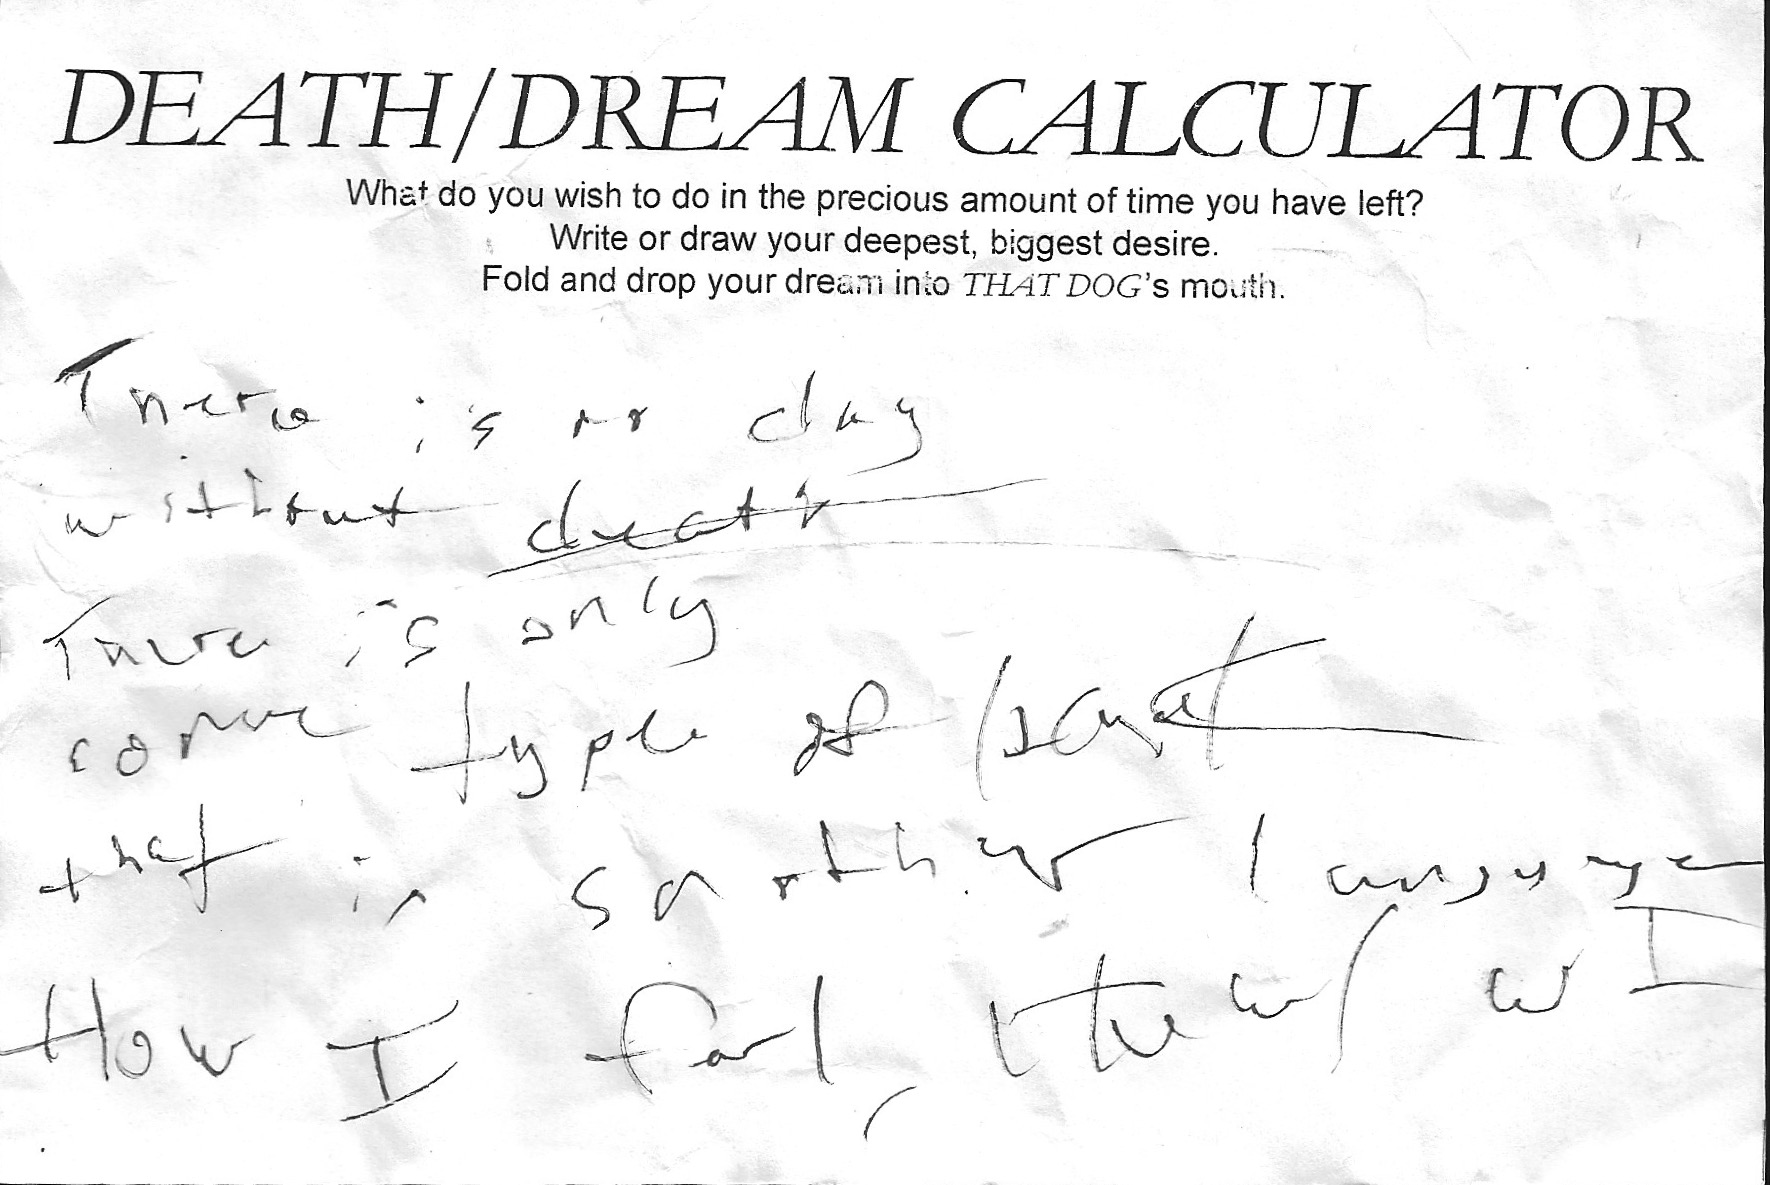 DEATH/DREAM CALCULATOR
What do you wish to do in the precious amount of time you have left?
Write or draw your deepest, biggest desire.
Fold and drop your dream into THAT DOG's mouth.
There is no day
without death
There is only
some type of
that is another language
How I feel, I